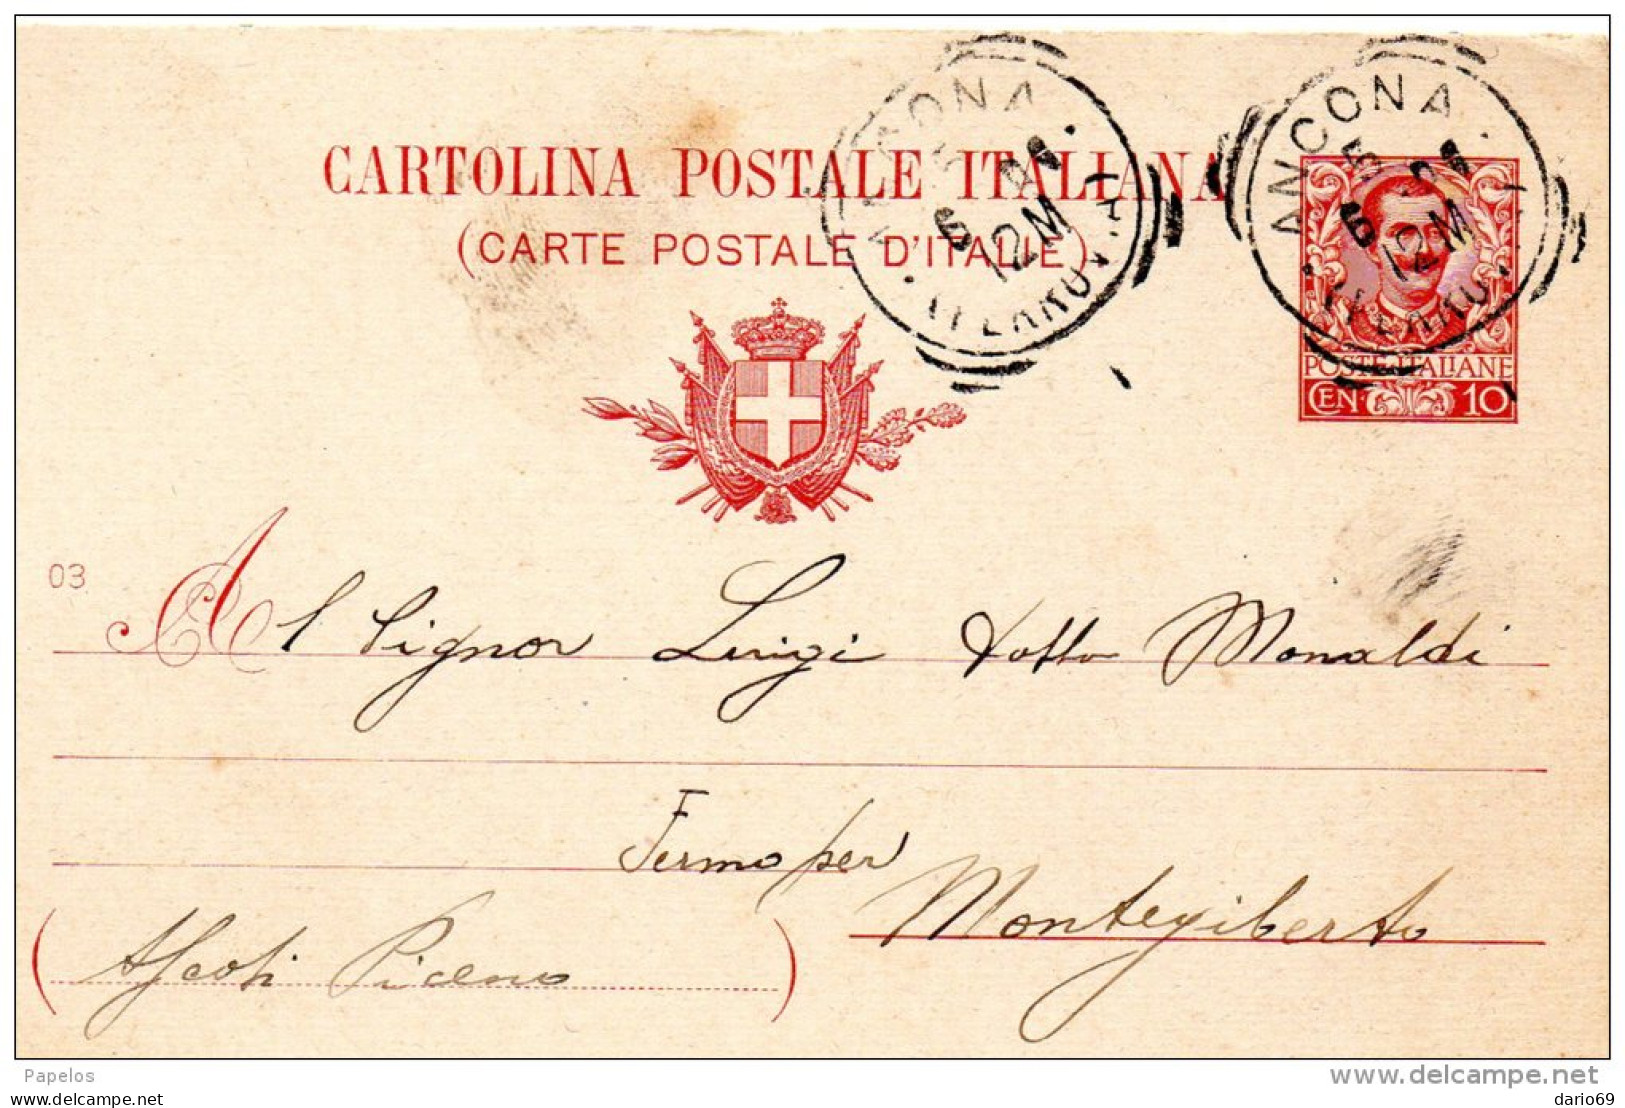 CARTOLINA POSTALE ITALIANA
(CARTE POSTALE D'ITALIE)
ANCONA
5
6
12 M
ANCONA
5
6
12 M
POSTE ITALIANE
CEN. 10
03
Al Signor Luigi Dottor Monaldi
Fermo per
Montegiberto
(Ascoli Piceno)
Papelos
www.delcampe.net
dario69